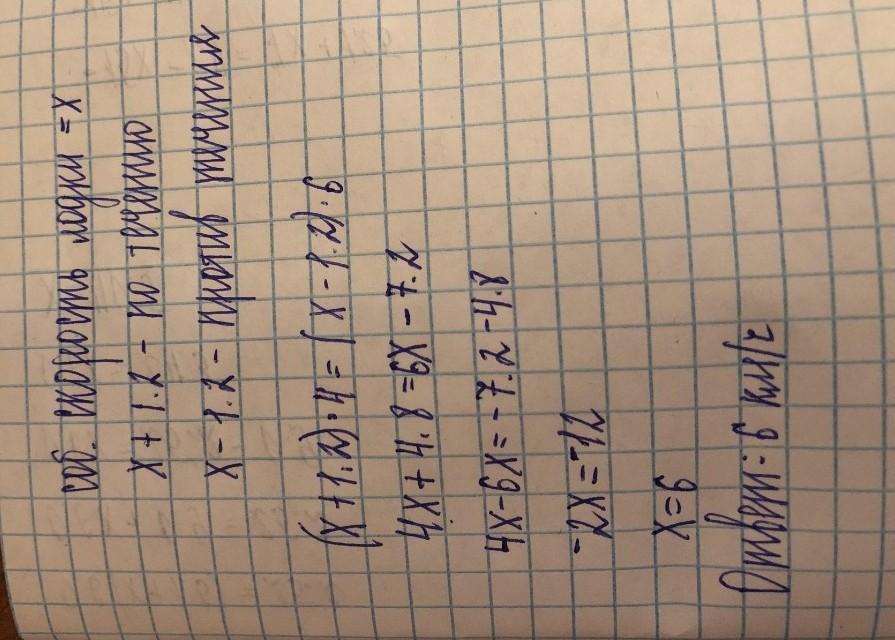 соб. скорость лодки = x
x + 1.2 - по течению
x - 1.2 - против течения
(x + 1.2) · 4 = (x - 1.2) · 6
4x + 4.8 = 6x - 7.2
4x - 6x = -7.2 - 4.8
-2x = -12
x = 6
Ответ: 6 км/ч